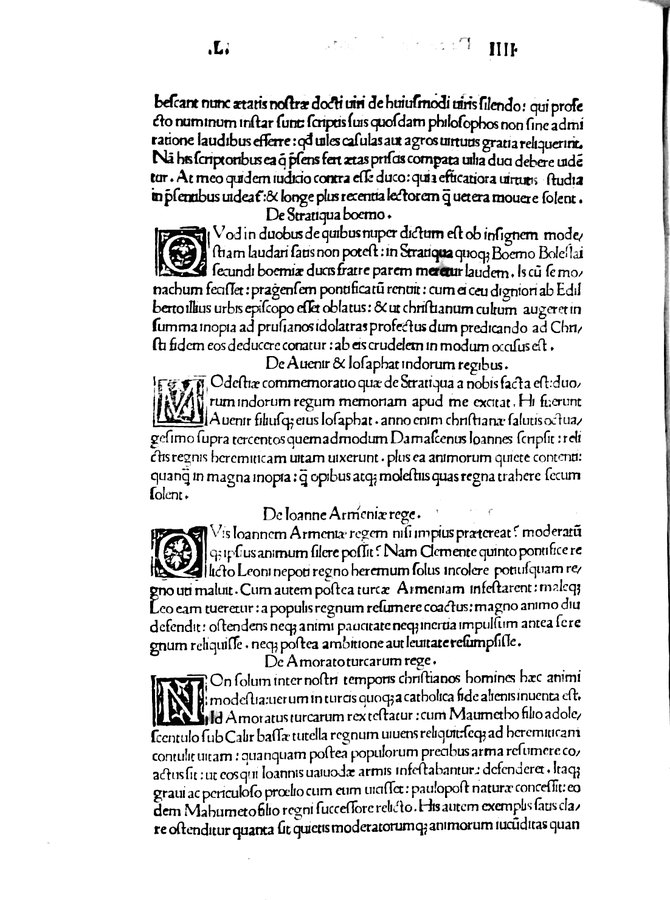 .L. IIII
bescant nunc ætatis nostræ docti uiri de huiusmodi uiris silendo: qui profe
cto numinum instar sunt: scriptis suis quosdam philosophos non sine admi
ratione laudibus efferre: qđ uiles casulas aut agros uirtutis gratia reliquerint.
Nã his scriptoribus ea q̃ p̃sens fert ætas priscis compata uilia duci debere uidẽ
tur. At meo quidem iudicio contra esse duco: quia efficatiora uirtutis studia
in p̃sentibus uideať: & longe plus recentia lectorem q̃ uetera mouere solent.
De Stratiqua boemo.
QVod in duobus de quibus nuper dictum est ob insignem mode/
stiam laudari satis non potest: in Stratiqua quoq; Boemo Boleslai
secundi boemiæ ducis fratre parem meretur laudem. Is cũ se mo/
nachum fecisset: pragensem pontificatũ renuit: cum ei ceu digniori ab Edil
berto illius urbis episcopo esset oblatus: & ut christianum cultum augeret in
summa inopia ad prusianos idolatras profectus dum predicando ad Chri/
sti fidem eos deducere conatur: ab eis crudelem in modum occisus est.
De Auenir & Iosaphat indorum regibus.
MOdestiæ commemoratio quæ de Stratiqua a nobis facta est: duo/
rum indorum regum memoriam apud me excitat. Hi fuerunt
Auenir filiusq; eius Iosaphat. anno enim christianæ salutis octua/
gesimo supra tercentos quemadmodum Damascenus Ioannes scripsit: reli
ctis regnis heremiticam uitam uixerunt. plus ea animorum quiete contenti:
quanq̃ in magna inopia: q̃ opibus atq; molestiis quas regna trahere secum
solent.
De Ioanne Armeniæ rege.
QVis Ioannem Armeniæ regem nisi impius prætereat? moderatũ
q; ipsius animum silere possit? Nam Clemente quinto pontifice re
licto Leoni nepoti regno heremum solus incolere potiusquam re/
gno uti maluit. Cum autem postea turcæ Armeniam infestarent: maleq;
Leo eam tueretur: a populis regnum resumere coactus: magno animo diu
defendit: ostendens neq; animi paucitate neq; inertia impulsum antea sere
gnum reliquisse. neq; postea ambitione aut leuitate resumpsisse.
De Amorato turcarum rege.
NOn solum inter nostri temporis christianos homines hæc animi
modestia: uerum in turcis quoq; a catholica fide alienis inuenta est.
Id Amoratus turcarum rex testatur: cum Maumetho filio adole/
scentulo sub Calir bassæ tutella regnum uiuens reliquit: seq; ad heremiticam
contulit uitam: quanquam postea populorum precibus arma resumere co/
actus sit: ut eos qui Ioannis uaiuodæ armis infestabantur: defenderet. Itaq;
graui ac periculoso prœlio cum eum uicisset: paulopost naturæ concessit: eo
dem Mahumeto filio regni successore relicto. His autem exemplis satis cla/
re ostenditur quanta sit quietis moderatorumq; animorum iucũditas quan